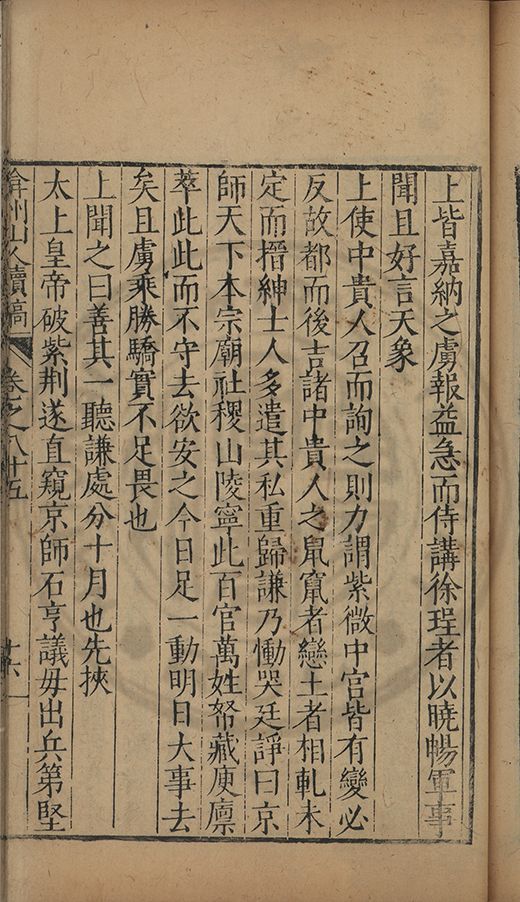 上皆嘉納之虜報益急而侍講徐珵者以曉暢軍事
聞且好言天象
上使中貴人召而詢之則力謂紫微中宮皆有變必
反故都而後吉諸中貴人之鼠竄者戀土者相軋未
定而搢紳士人多遣其私重歸謙乃慟哭廷諍曰京
師天下本宗廟社稷山陵寧此百官萬姓帑藏庾廪
萃此此而不守去欲安之今日足一動明日大事去
矣且虜乘勝驕實不足畏也
上聞之曰善其一聽謙處分十月也先挾
太上皇帝破紫荆遂直窺京師石亨議毋出兵第堅
弇州山人續稿 卷之八十五